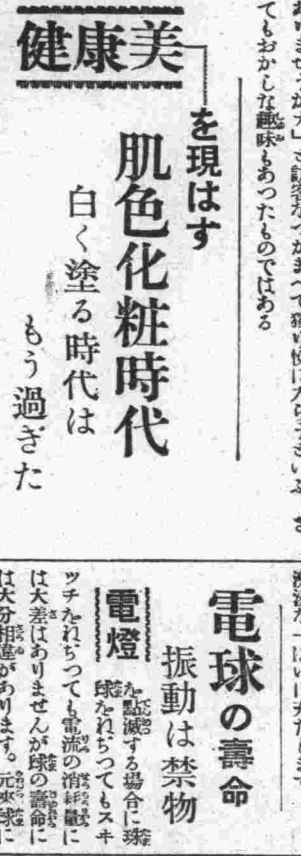 てもおかしな趣味もあつたものではある
健康美
を現はす
肌色化粧時代
白く塗る時代は
もう過ぎた
電球の壽命
振動は禁物
電燈
を點滅する場合に球
球をねぢつてもスキ
ツチをねぢつても電流の消耗量に
は大差はありませんが球の壽命に
は大分相違があります。元來球に